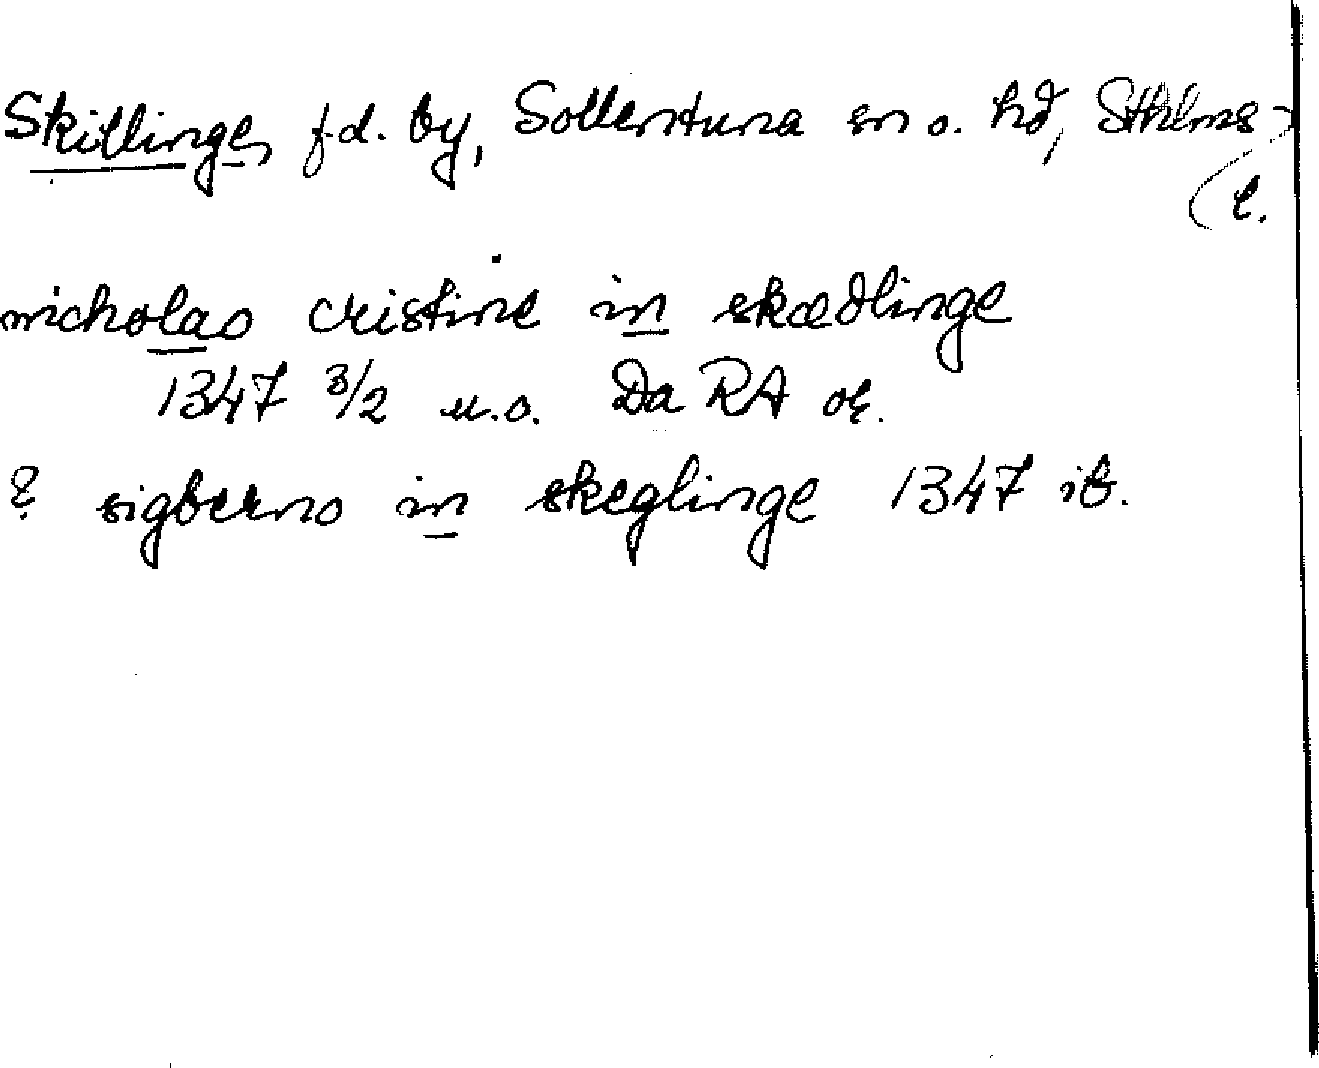 Skillinge, f.d. by, Sollentuna sn o. hd, Sthlms
l.
nicholao cristine in skædlinge
1347 3/2 u.o. Da RA or.
? sigberno in skeglinge 1347 ib.